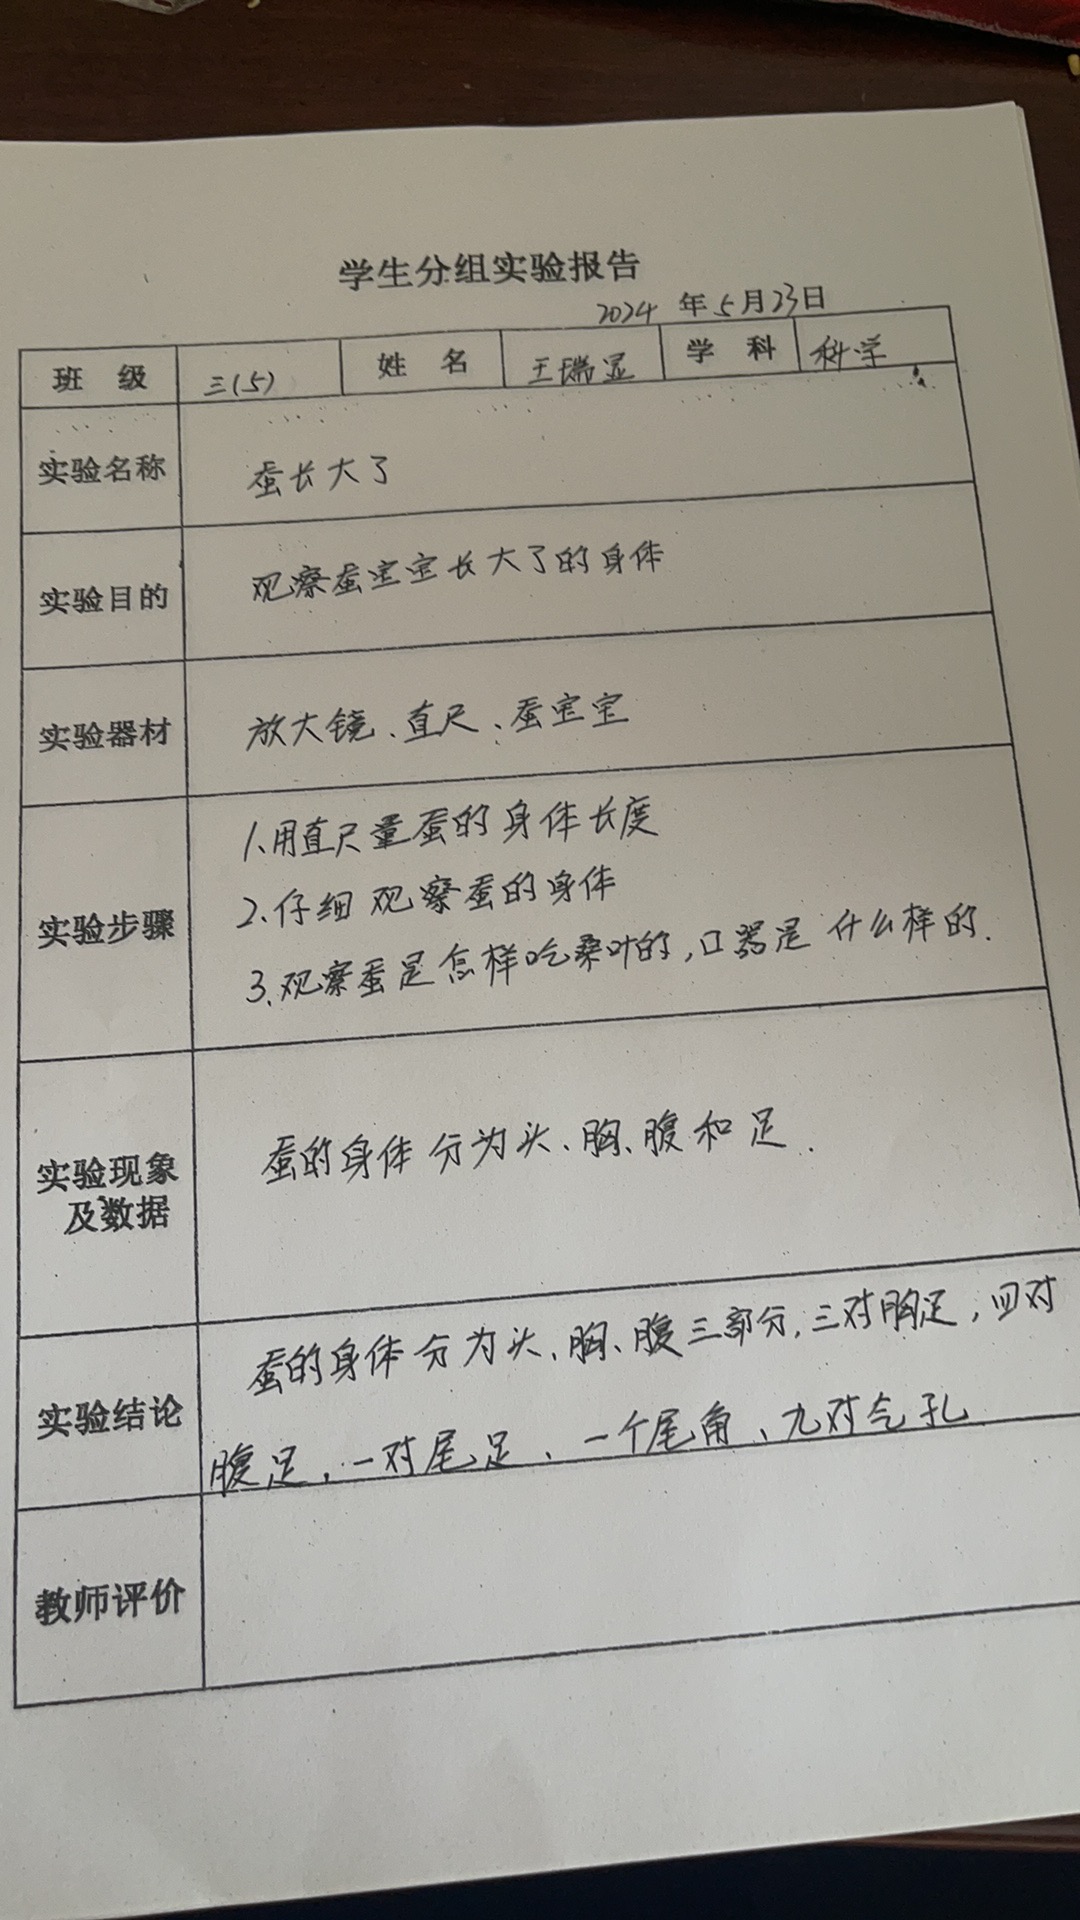 学生分组实验报告
2024 年 5 月 23 日
班 级 三(5) 姓 名 王瑞显 学 科 科学
实验名称 蚕长大了
实验目的 观察蚕宝宝长大了的身体
实验器材 放大镜、直尺、蚕宝宝
实验步骤
1、用直尺量蚕的身体长度
2、仔细观察蚕的身体
3、观察蚕是怎样吃桑叶的,口器是什么样的.
实验现象
及数据
蚕的身体分为头、胸、腹和足.
实验结论
蚕的身体分为头、胸、腹三部分,三对胸足,四对
腹足,一对尾足、一个尾角、九对气孔
教师评价